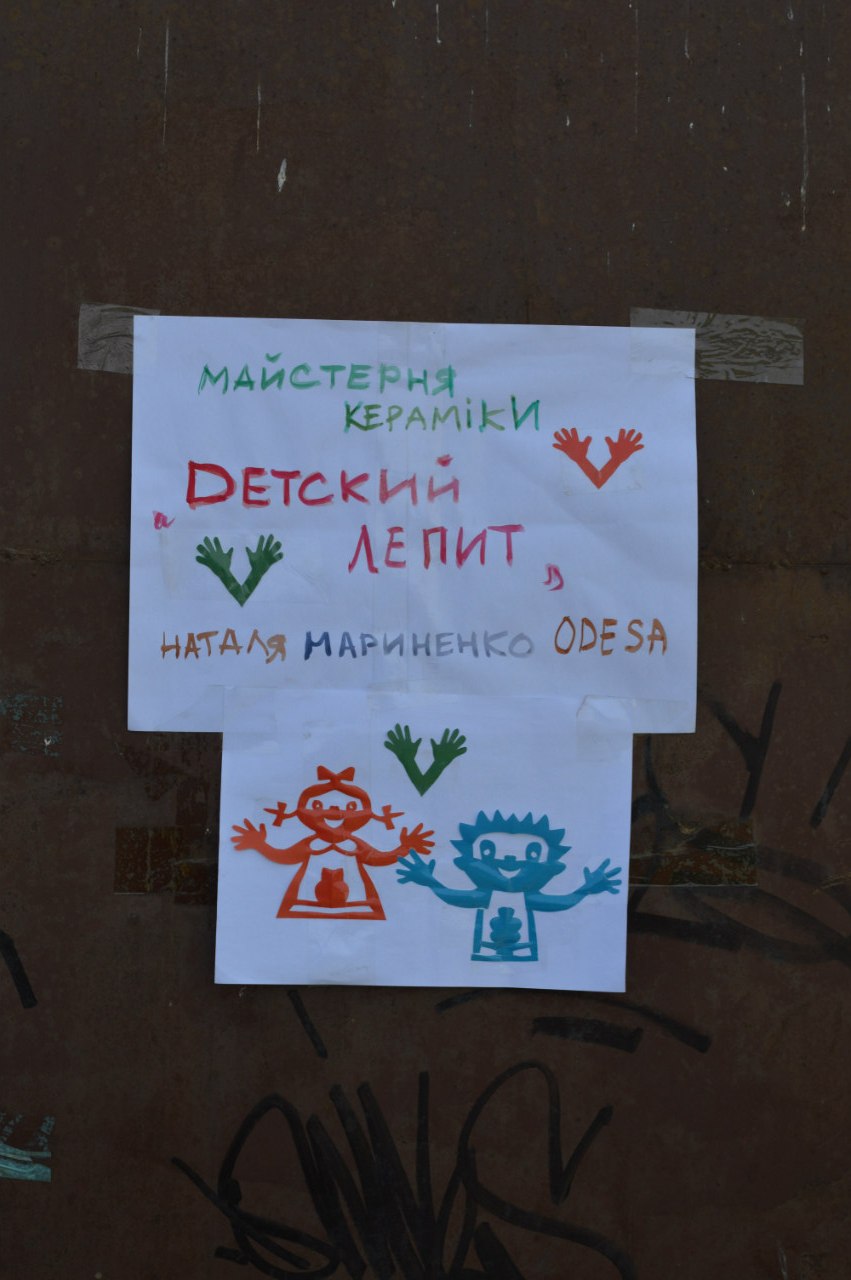 МАЙСТЕРНЯ
КЕРАМІКИ
"ДЕТСКИЙ
ЛЕПИТ"
НАТАЛЯ МАРИНЕНКО ODESA